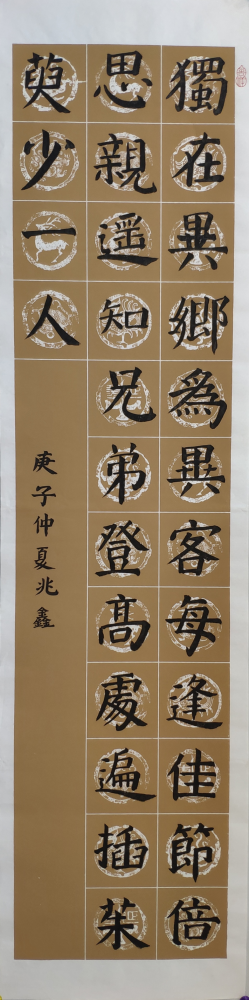 獨在異鄉為異客每逢佳節倍
思親遥知兄弟登高處遍插茱
萸少一人
庚子仲夏兆鑫